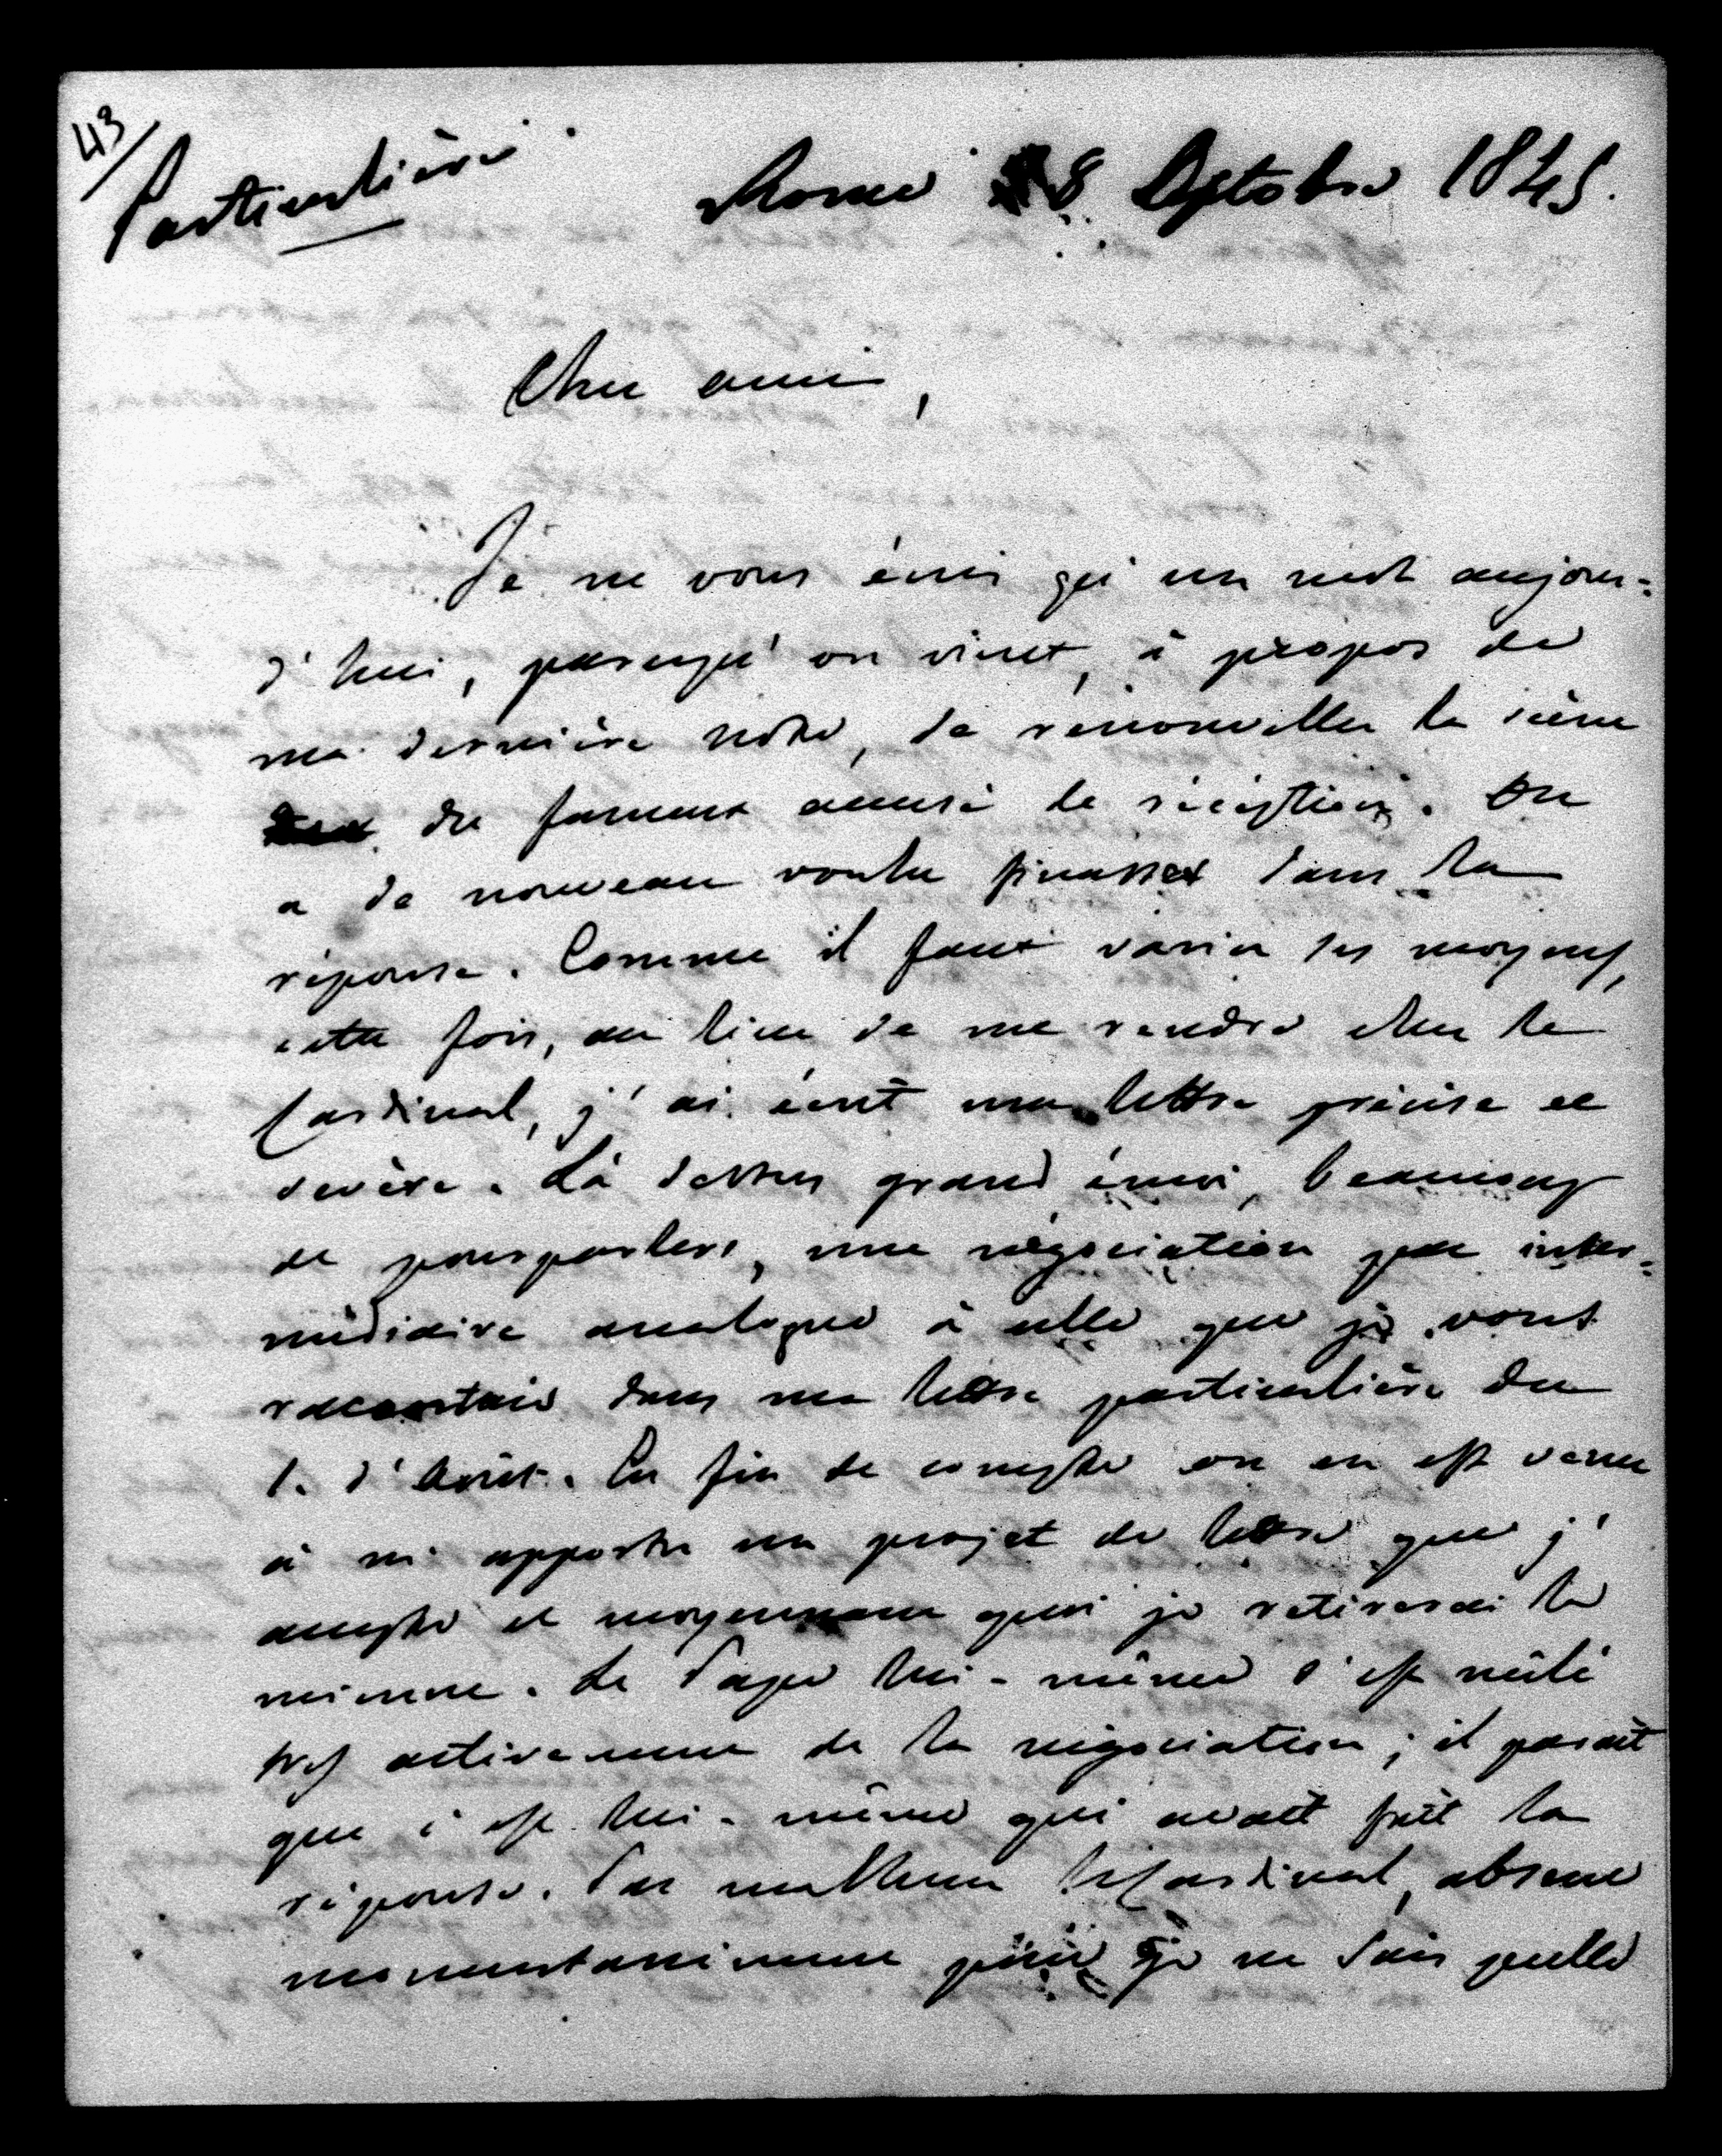 43/
Particulière
Rome 8 Octobre 1845.
Cher ami,
Je ne vous écris qu'un mot aujour-
d'hui, parcequ'on vient, à propos de
ma dernière note, de renouveller la scène
du fameux accusé de réception. On
a de nouveau voulu finasser dans la
réponse. Comme il faut varier les moyens,
cette fois, au lieu de me rendre chez le
Cardinal, j'ai écrit une lettre précise et
sévère. Là dessus grand émoi, beaucoup
de pourparlers, une négociation par inter-
médiaire analogue à celle que je vous
racontais dans ma lettre particulière du
1. d'Août. En fin de compte on en est venu
à m'apporter un projet de lettre que j'
accepte et moyennant quoi je retirerai la
mienne. Le Pape lui-même s'est mêlé
très activement de la négociation; il parait
que c'est lui-même qui avait fait la
réponse. Par malheur le Cardinal, absent
momentanément pour je ne sais quelle